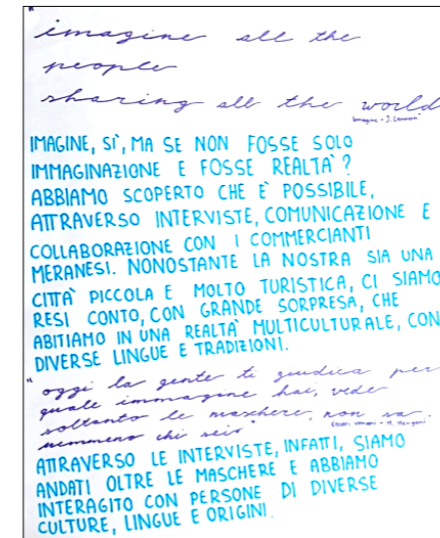 "imagine all the
people
sharing all the world"
Imagine - J. Lennon
IMAGINE, SI', MA SE NON FOSSE SOLO
IMMAGINAZIONE E FOSSE REALTA'?
ABBIAMO SCOPERTO CHE E' POSSIBILE,
ATTRAVERSO INTERVISTE, COMUNICAZIONE E
COLLABORAZIONE CON I COMMERCIANTI
MERANESI. NONOSTANTE LA NOSTRA SIA UNA
CITTA' PICCOLA E MOLTO TURISTICA, CI SIAMO
RESI CONTO, CON GRANDE SORPRESA, CHE
ABITIAMO IN UNA REALTA' MULTICULTURALE, CON
DIVERSE LINGUE E TRADIZIONI.
"oggi la gente ti giudica per
quale immagine hai, vede
soltanto le maschere, non sa
nemmeno chi sei"
(Esseri umani - M. Mengoni)
ATTRAVERSO LE INTERVISTE, INFATTI, SIAMO
ANDATI OLTRE LE MASCHERE E ABBIAMO
INTERAGITO CON PERSONE DI DIVERSE
CULTURE, LINGUE E ORIGINI.